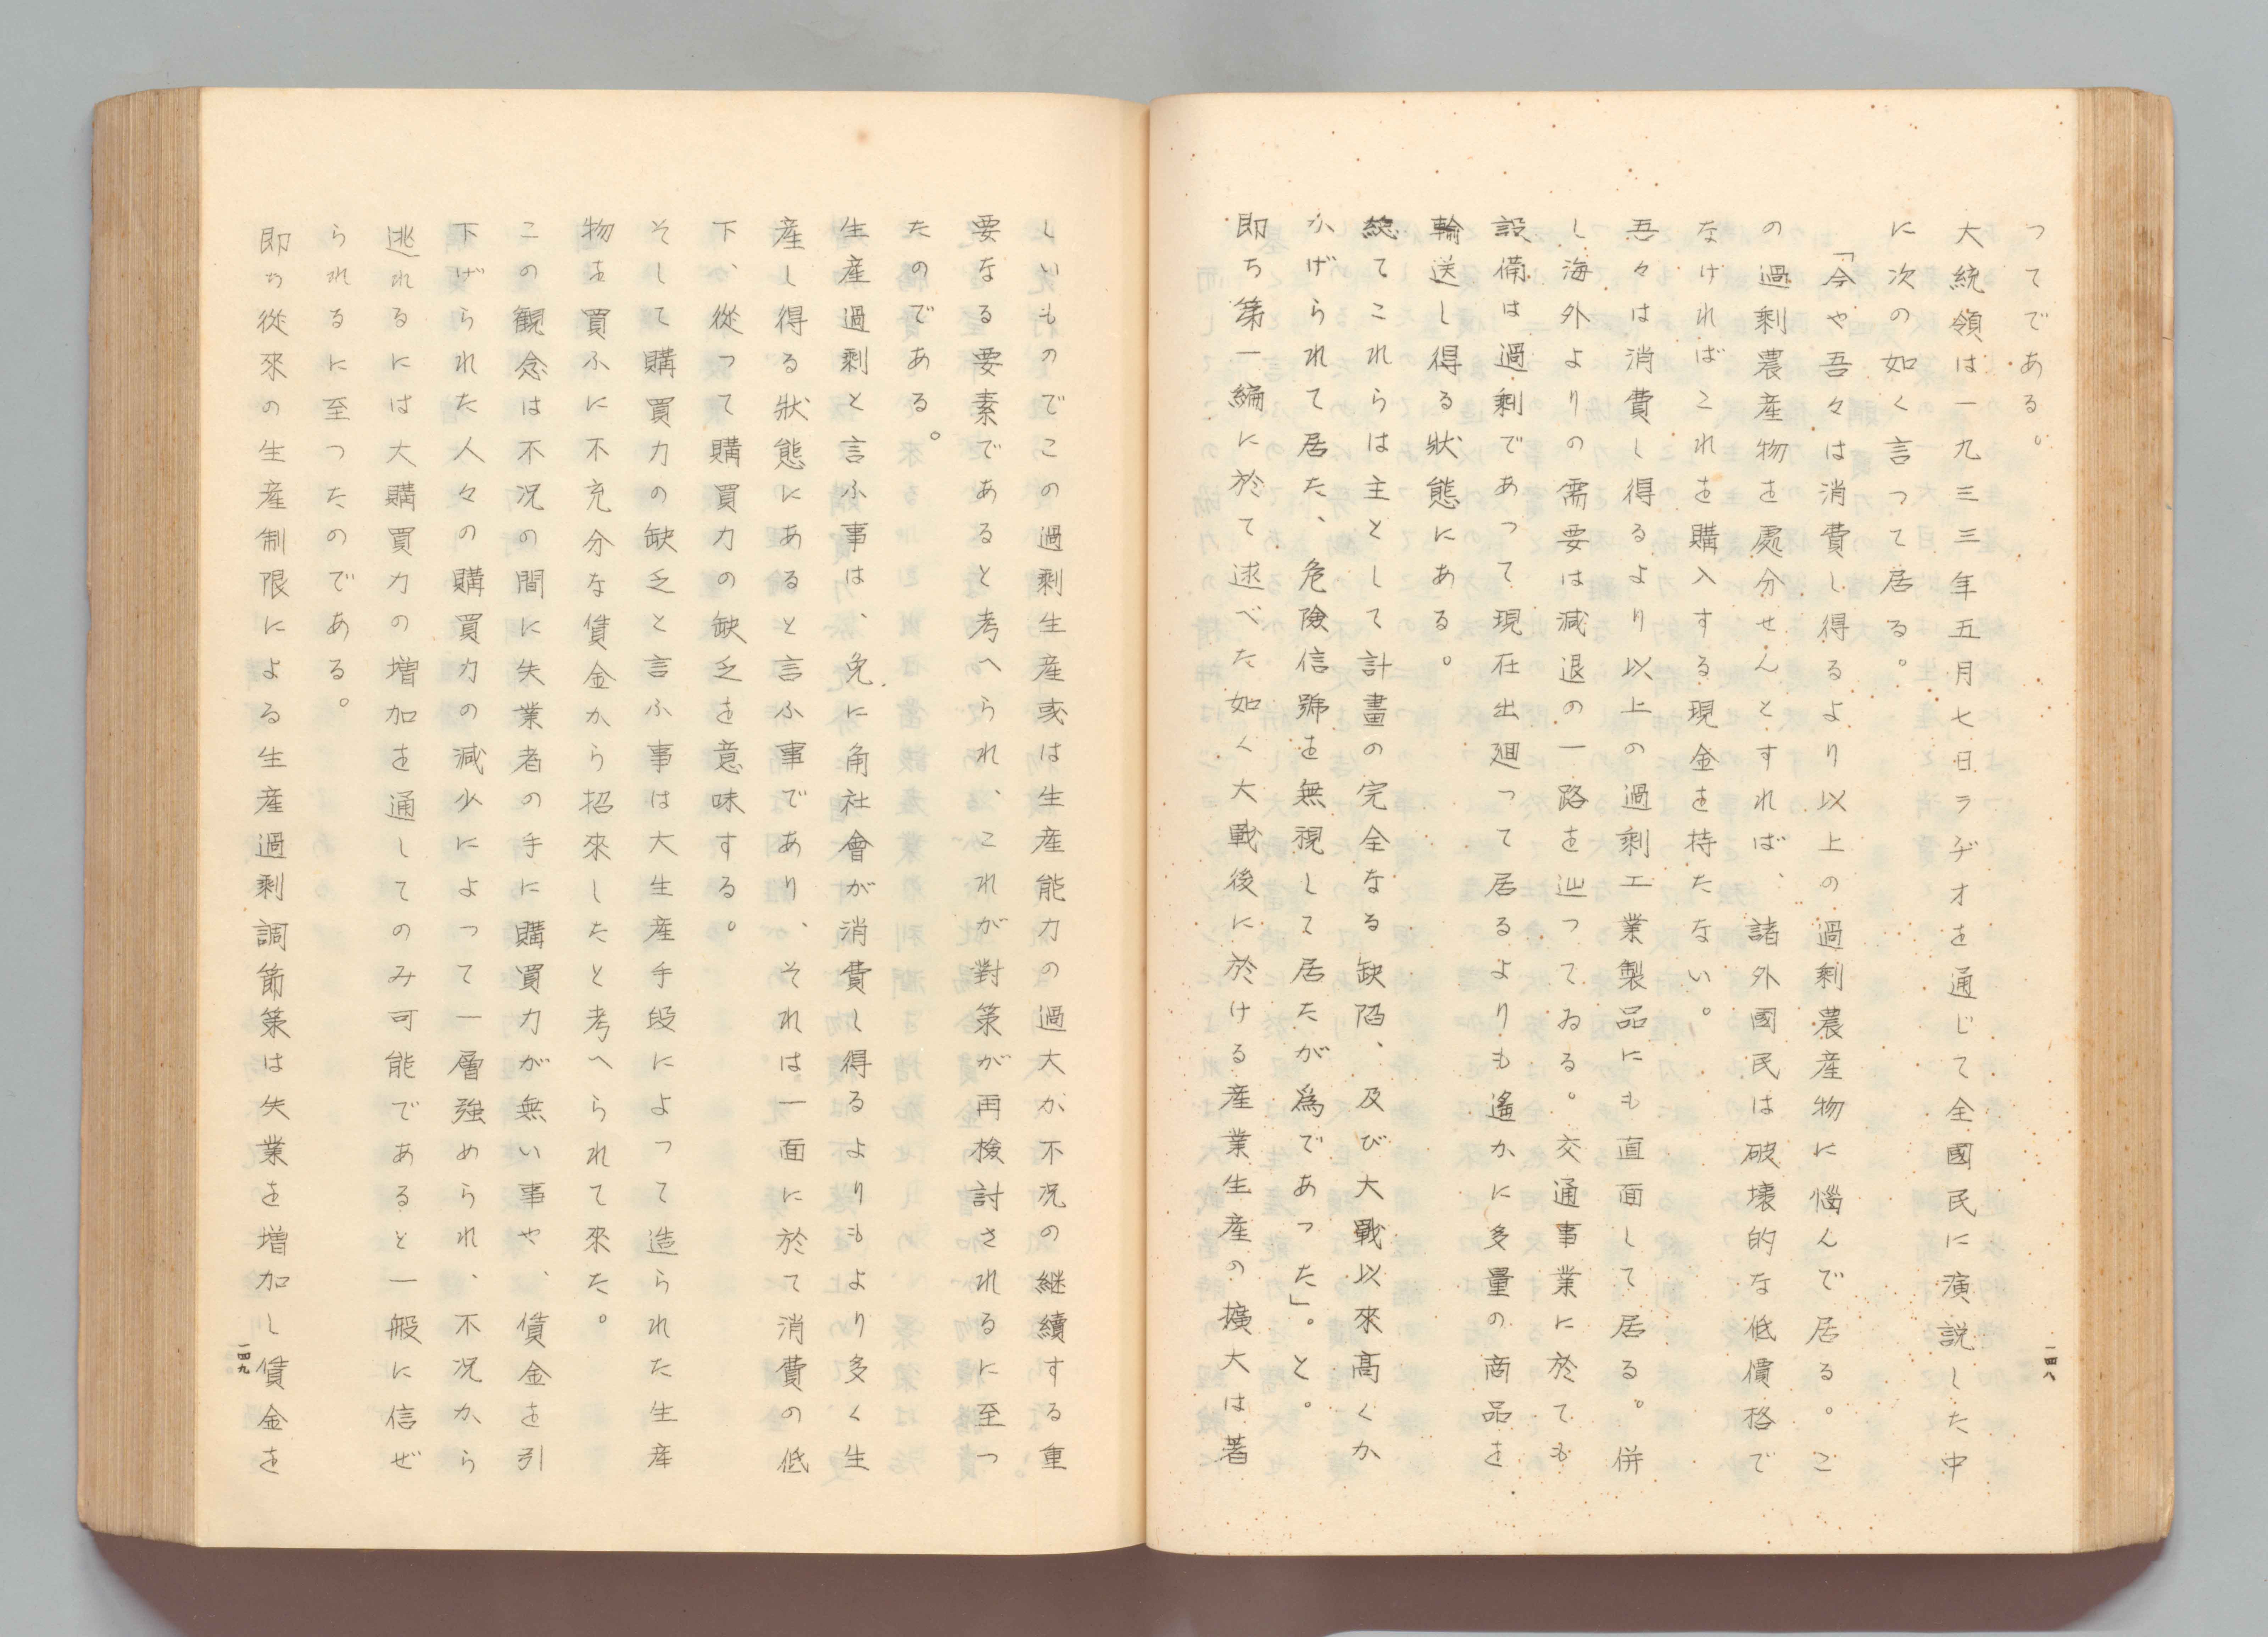 つてである。
大統領は一九三三年五月七日ラヂオを通じて全國民に演説した中
に次の如く言つて居る。
「今や吾々は消費し得るより以上の過剰農産物に惱んで居る。こ
の過剰農産物を處分せんとすれば、諸外國民は破壊的な低價格で
なければこれを購入する現金を持たない。
吾々は消費し得るより以上の過剰工業製品にも直面して居る。併
し海外よりの需要は減退の一路を辿つてゐる。交通事業に於ても
設備は過剰であつて現在出廻つて居るよりも遙かに多量の商品を
輸送し得る狀態にある。
総てこれらは主として計畫の完全なる缺陥、及び大戰以來高くか
かげられて居た、危險信號を無視して居たが爲であつた」。と。
即ち第一編に於て逑べた如く大戰後に於ける産業生産の擴大は著
一四八
しいものでこの過剰生産或は生産能力の過大が不況の継續する重
要なる要素であると考へられ、これが對策が再検討されるに至つ
たのである。
生産過剰と言ふ事は、免に角社會が消費し得るよりもより多く生
産し得る狀態にあると言ふ事であり、それは一面に於て消費の低
下、從つて購買力の缺乏を意味する。
そして購買力の缺乏と言ふ事は大生産手段によつて造られた生産
物を買ふに不充分な賃金から招來したと考へられて來た。
この観念は不況の間に失業者の手に購買力が無い事や、賃金を引
下げられた人々の購買力の減少によつて一層強められ、不況から
逃れるには大購買力の増加を通してのみ可能であると一般に信ぜ
られるに至つたのである。
即ち從來の生産制限による生産過剰調節策は失業を増加し賃金を
一四九